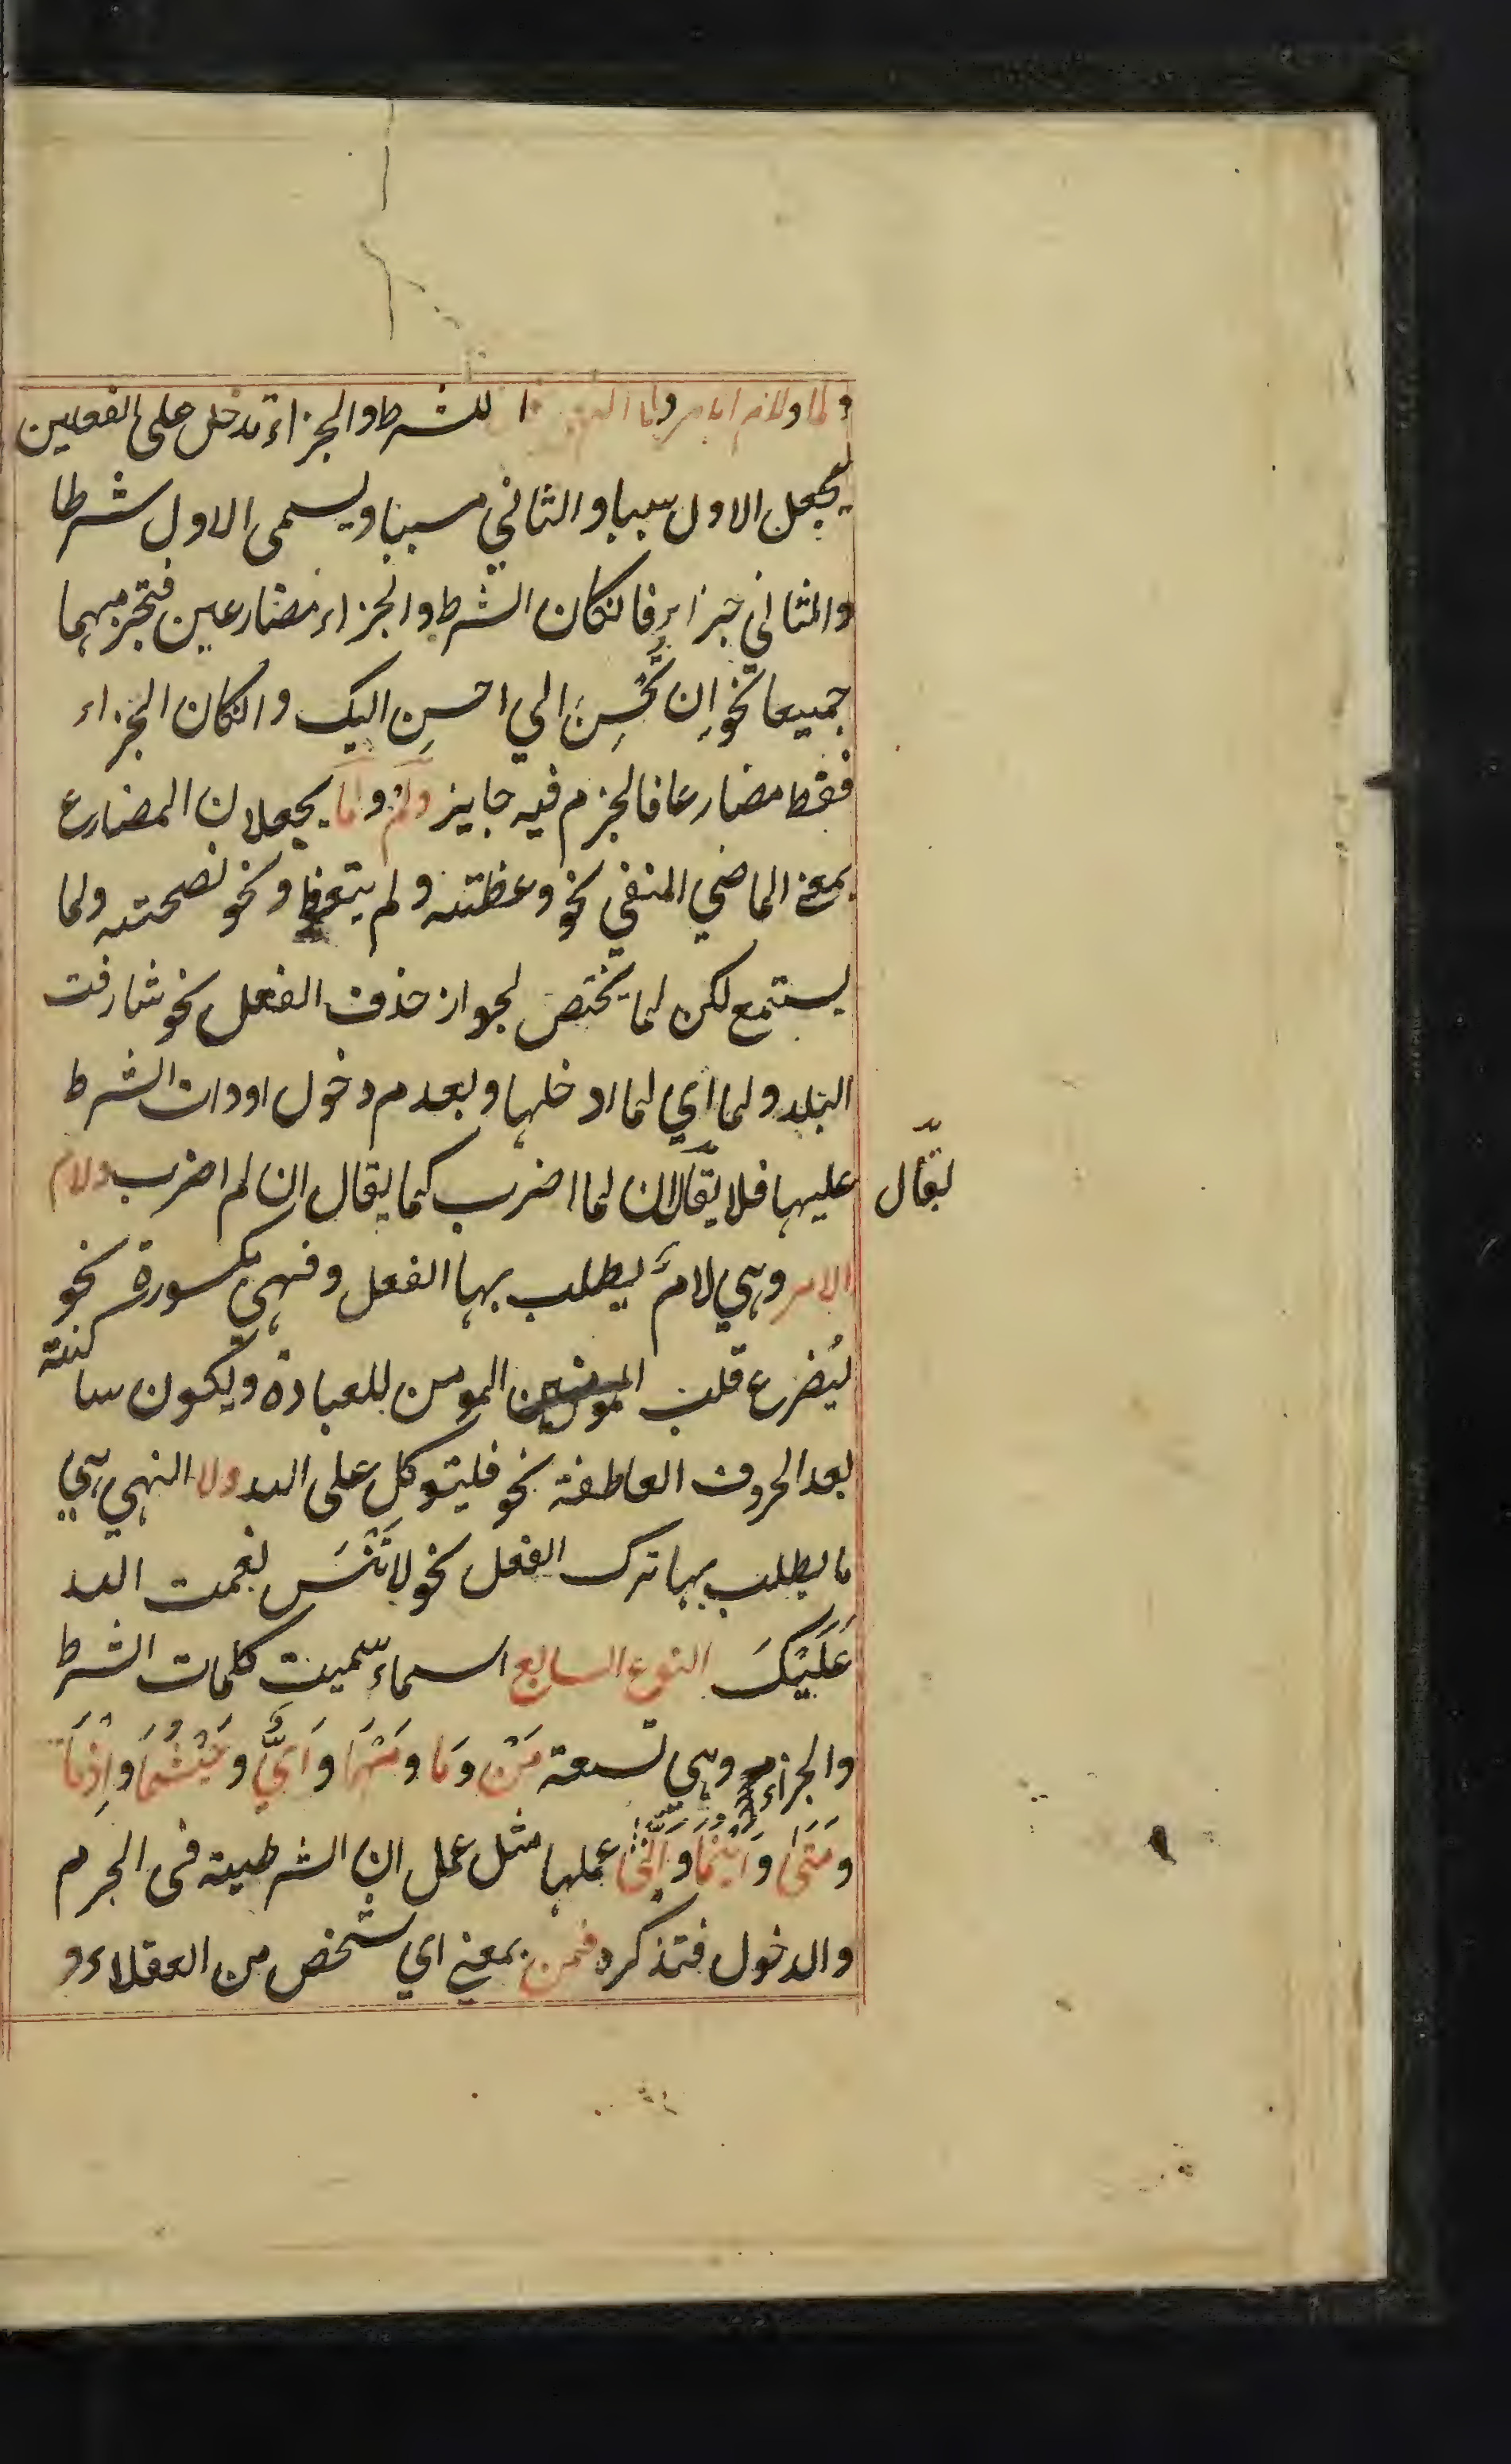 ولما ولام الامر ولا للشرط والجزاء تدخل على الفعلين
يجعل الاول سببا والثاني مسببا ويسمى الاول شرطا
والثاني جزاء فانكان الشرط والجزاء مضارعين فتجزمهما
جميعا نحو اِن تُحْسِنْ الي احسِن اليك وانكان الجزاء
فقط مضارعا فالجزم فيه جايز ولم ولما يجعلان المضارع
بمعنى الماضي المنفي نحو وعظته ولم يتعظ ونحو نصحته ولما
يستمع لكن لما يختص لجواز حذف الفعل نحو شارفت
البلد ولما اي لما ادخلها وبعدم دخول اودات الشرط
عليها فلا يقال ان لما اضرب كما يقال ان لم اضرب ولام
يقال
الامر وهي لامٌ يطلب بها الفعل وفهي مكسورة نحو
ليُضرع قلب المومنين المومن للعبادة ويكون ساكنة
بعد الحروف العاطفة نحو فليتوكل على الله ولا النهي هي
ما يطلب بها ترك الفعل نحو لا تَنْسَ نعمت الله
عَلَيْكَ النوع السابع اسماء سميت كلمات الشرط
والجزاء وهي تسعة مَنْ وَمَا ومَهْمَا وَاَيٌّ وحَيْثُمَا واِذْمَا
وَمَتَىٰ وَاَيْنَمَا وَاَنّىٰ عملها مثل عمل ان الشرطية فى الجزم
والدخول فتذكره فمن بمعنى اي شخص من العقلاء و